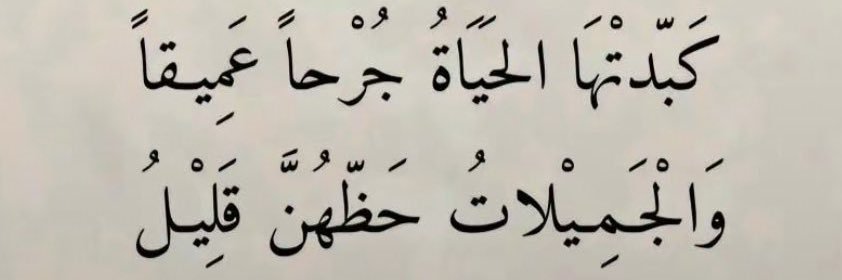 كَبّدتْهَا الحَيَاةُ جُرْحاً عَمِيقاً
وَالْجَمِيْلاتُ حَظّهُنَّ قَلِيْلُ